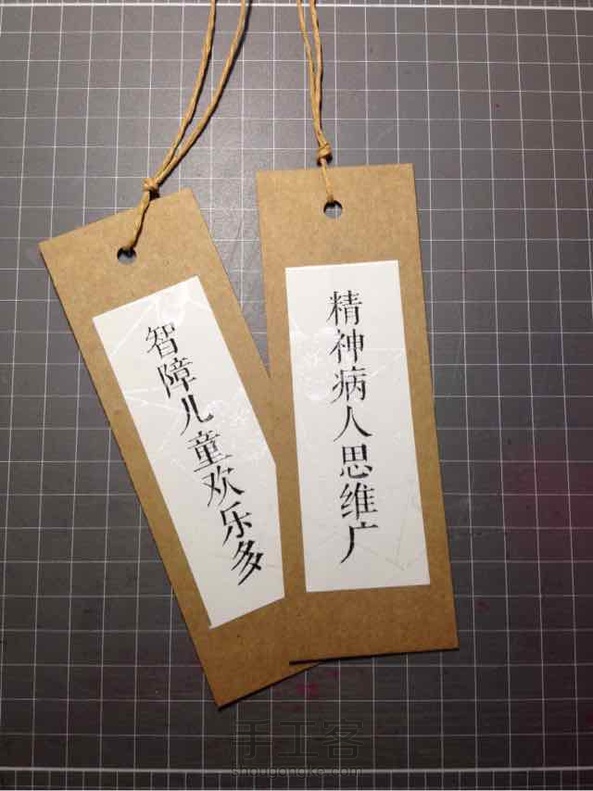 智障儿童欢乐多
精神病人思维广
手工客
shougongke.com